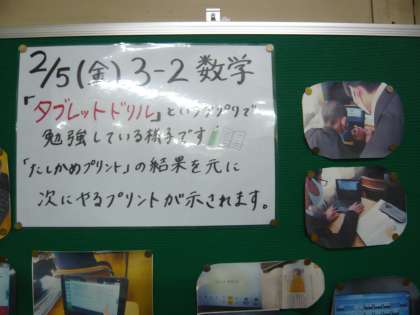 2/5(金) 3-2 数学
「タブレットドリル」というアプリで
勉強している様子です
「たしかめプリント」の結果を元に
次にやるプリントが示されます。